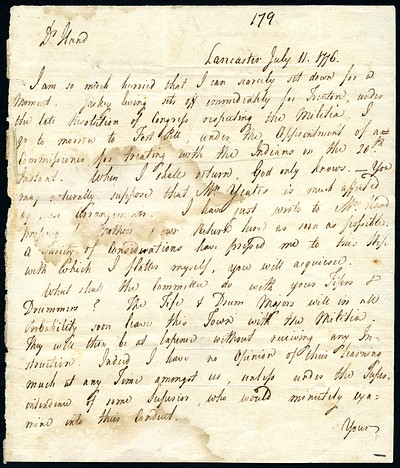 179
Dr. Hand
Lancaster July 11. 1776.
I am so much hurried that I can scarcely set down for a
Moment. living sets off immediately for Trenton, under
the late Resolution of Congress respecting the Militia. I
go to morrow to Fort Pitt, under the Appointment of a
Commissioner for treating with the Indians on the 20th.
Instant. When I shall return, God only knows. — You
may naturally suppose that Mrs. Yeates is much affected
by these Arrangements. I have just wrote to Mrs. Hand
your Return here as soon as possible.
A Variety of Considerations have pressed me to this Step
with which I flatter myself, you will acquiesce.
What shall the Committee do with your Fifers &
Drummers? The Fife & Drum Majors will in all
Probability soon leave this Town with the Militia.
They will then be at Expence without receiving any In-
struction. Indeed I have no Opinion of their learning
much at any Time amongst us, unless under the Super-
intendence of some Superior, who would minutely exa-
mine into their Conduct.
Yours